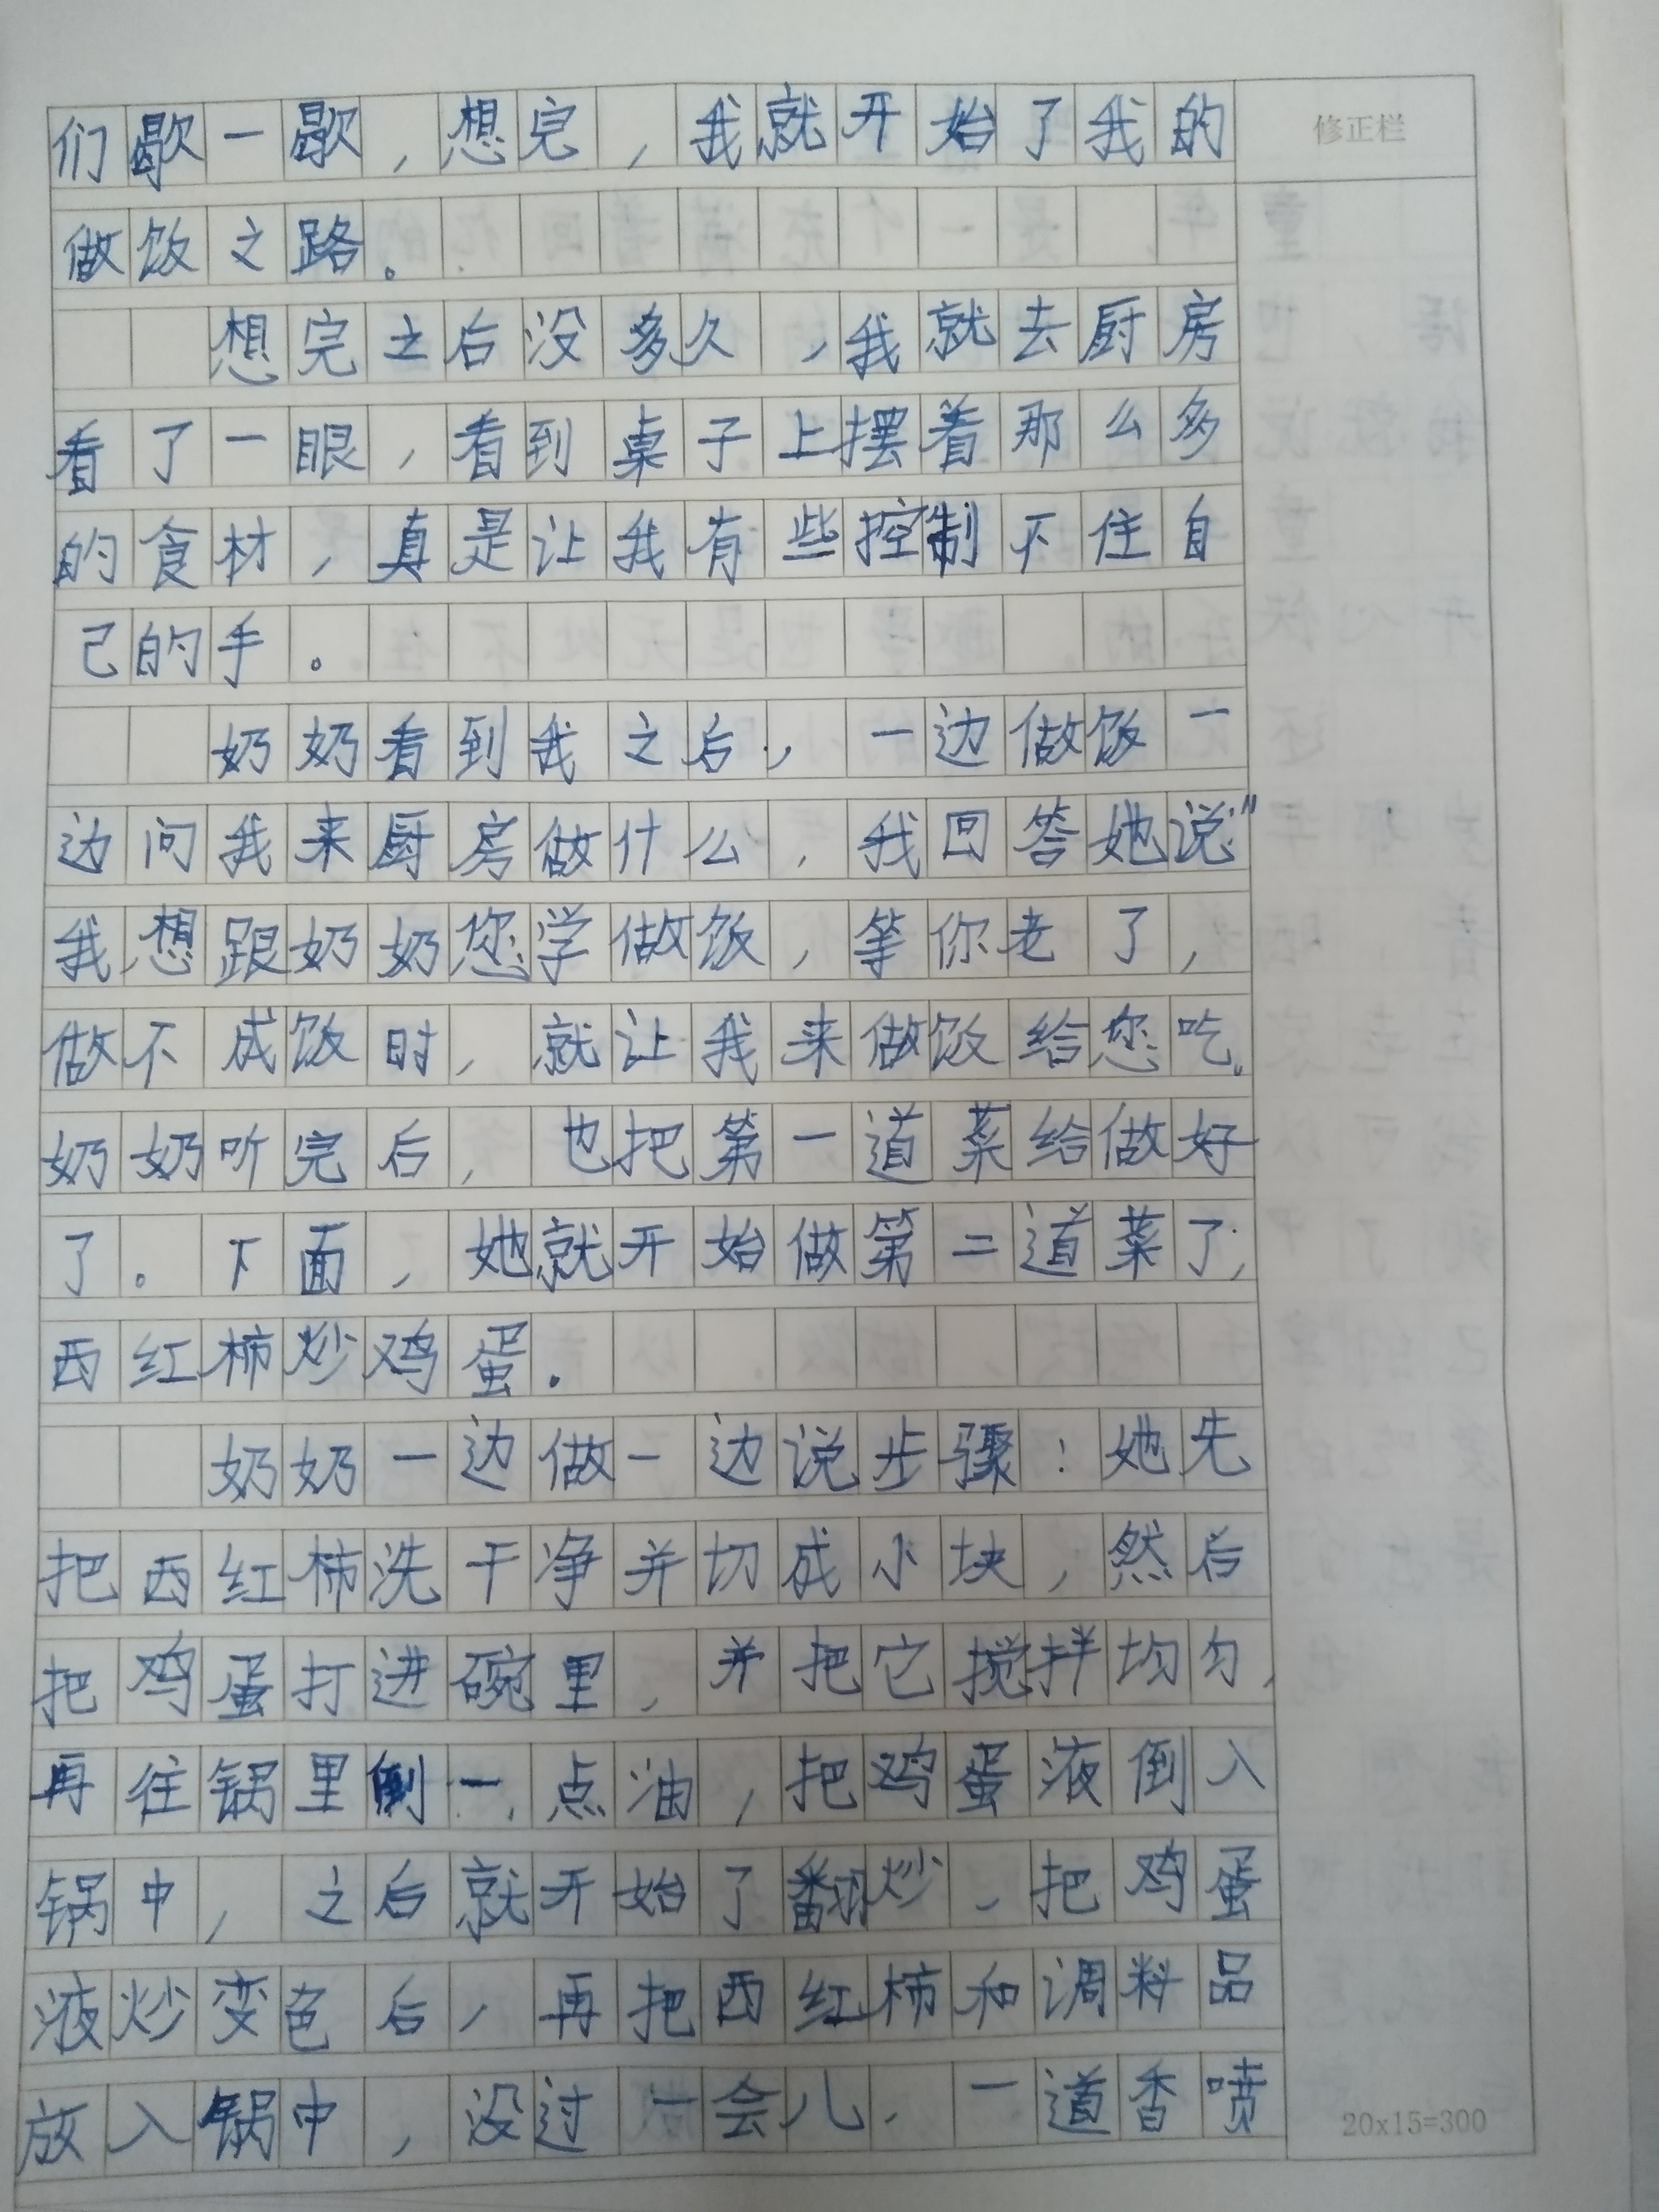 们歇一歇，想完，我就开始了我的
修正栏
做饭之路。
想完之后没多久，我就去厨房
看了一眼，看到桌子上摆着那么多
的食材，真是让我有些控制不住自
己的手。
奶奶看到我之后，一边做饭一
边问我来厨房做什么，我回答她说：“
我想跟奶奶您学做饭，等你老了，
做不成饭时，就让我来做饭给您吃。
奶奶听完后，也把第一道菜给做好
了。下面，她就开始做第二道菜了，
西红柿炒鸡蛋．
奶奶一边做一边说步骤：她先
把西红柿洗干净并切成小块，然后
把鸡蛋打进碗里，并把它搅拌均匀，
再往锅里倒一点油，把鸡蛋液倒入
锅中，之后就开始了翻炒，把鸡蛋
液炒变色后，再把西红柿和调料品
放入锅中，没过一会儿，一道香喷
20x15=300